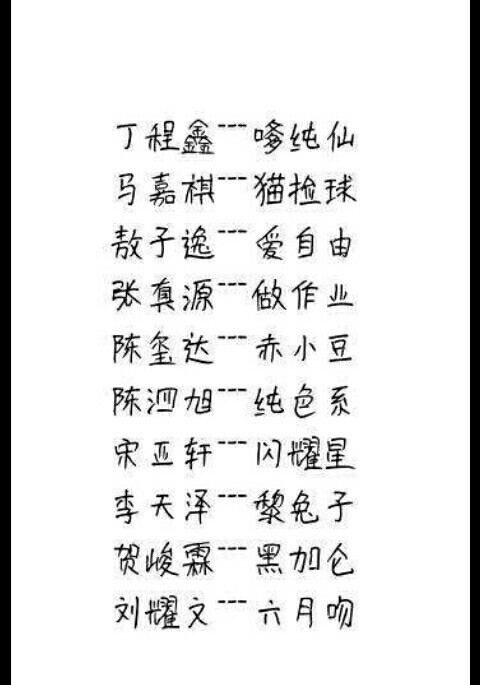 丁程鑫---嗲纯仙
马嘉祺---猫捡球
敖子逸---爱自由
张真源---做作业
陈玺达---赤小豆
陈泗旭---纯色系
宋亚轩---闪耀星
李天泽---黎兔子
贺峻霖---黑加仑
刘耀文---六月吻